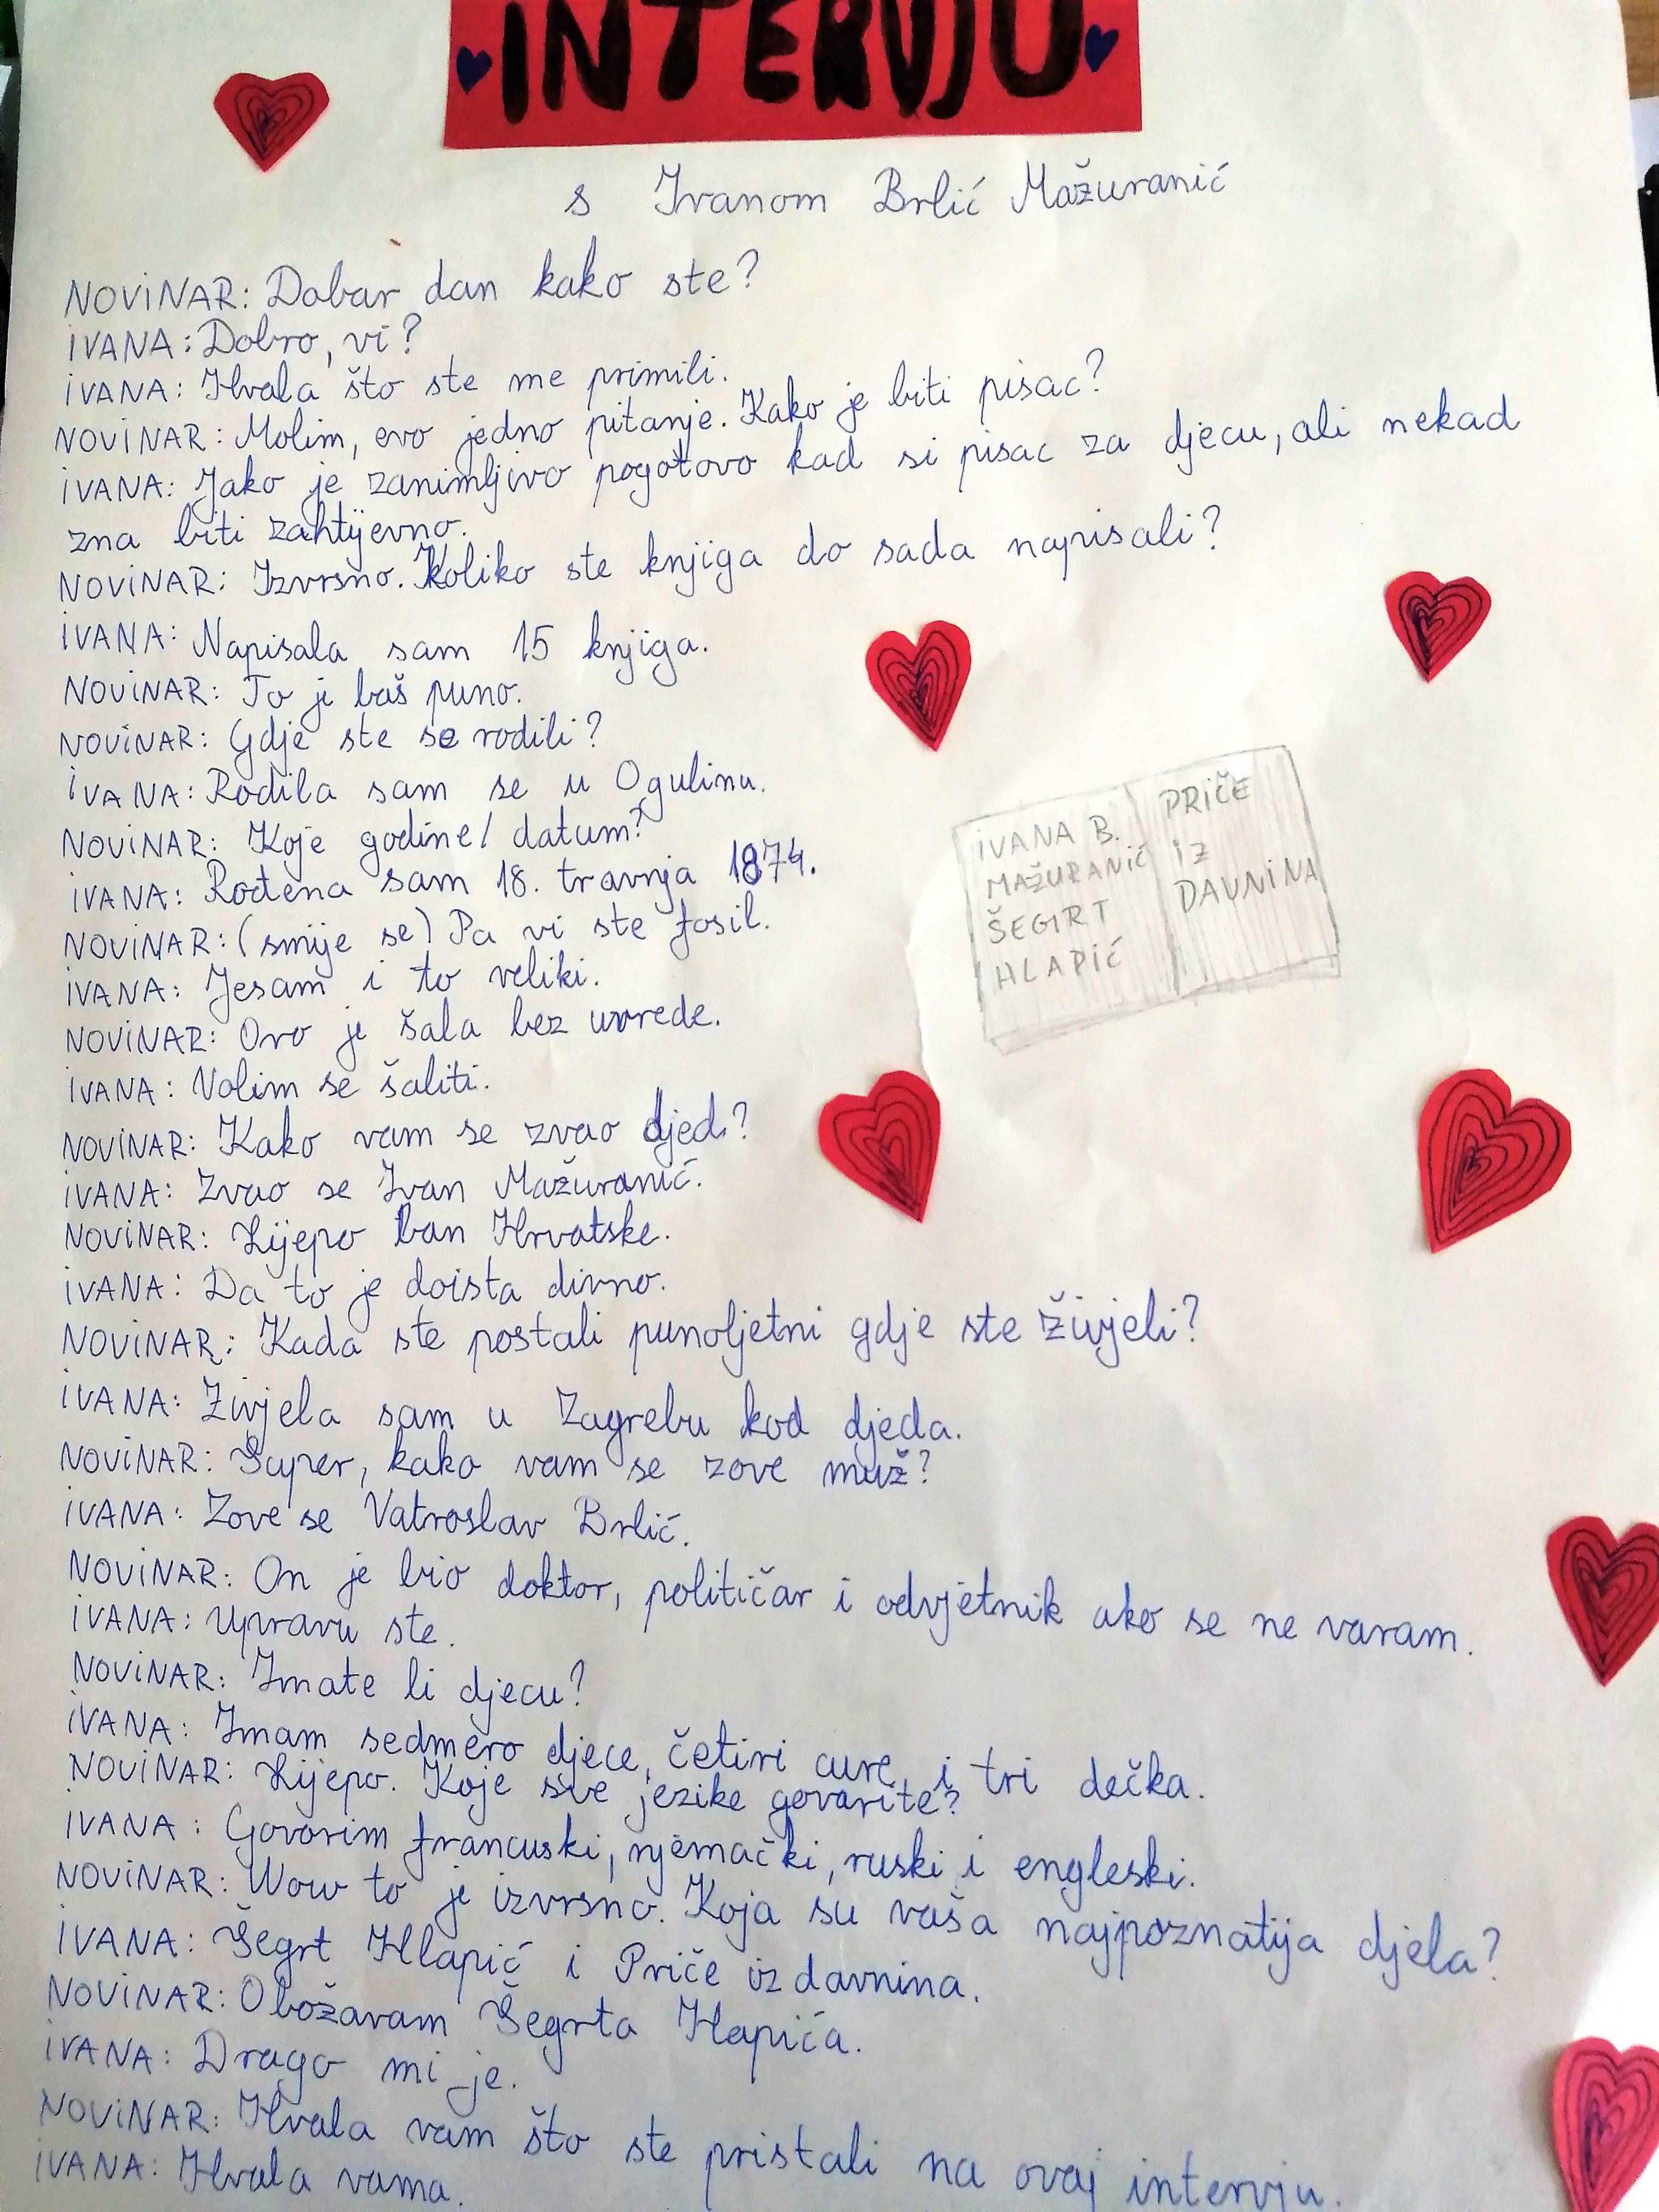 INTERVJU
s Ivanom Brlić Mažuranić
NOVINAR: Dobar dan kako ste?
IVANA: Dobro, vi?
IVANA: Hvala što ste me primili.
NOVINAR: Molim, evo jedno pitanje. Kako je biti pisac?
IVANA: Jako je zanimljivo pogotovo kad si pisac za djecu, ali nekad
zna biti zahtijevno.
NOVINAR: Izvrsno. Koliko ste knjiga do sada napisali?
IVANA: Napisala sam 15 knjiga.
NOVINAR: To je baš puno.
NOVINAR: Gdje ste se rodili?
IVANA: Rodila sam se u Ogulinu.
NOVINAR: Koje godine/datum?
IVANA: Rođena sam 18. travnja 1874.
NOVINAR: (smije se) Pa vi ste fosil.
IVANA: Jesam i to veliki.
NOVINAR: Ovo je šala bez uvrede.
IVANA: Volim se šaliti.
NOVINAR: Kako vam se zvao djed?
IVANA: Zvao se Ivan Mažuranić.
NOVINAR: Lijepo ban Hrvatske.
IVANA: Da to je doista divno.
NOVINAR: Kada ste postali punoljetni gdje ste živjeli?
IVANA: Živjela sam u Zagrebu kod djeda.
NOVINAR: Super, kako vam se zove muž?
IVANA: Zove se Vatroslav Brlić.
NOVINAR: On je bio doktor, političar i odvjetnik ako se ne varam.
IVANA: Upravu ste.
NOVINAR: Imate li djecu?
IVANA: Imam sedmero djece, četiri cure i tri dečka.
NOVINAR: Lijepo. Koje sve jezike govorite?
IVANA: Govorim francuski, njemački, ruski i engleski.
NOVINAR: Wow to je izvrsno. Koja su vaša najpoznatija djela?
IVANA: Šegrt Hlapić i Priče iz davnina.
NOVINAR: Obožavam Šegrta Hapića.
IVANA: Drago mi je.
NOVINAR: Hvala vam što ste pristali na ovaj intervju.
IVANA: Hvala vama.
IVANA B.
MAŽURANIĆ
ŠEGRT
HLAPIĆ
PRIČE
IZ
DAVNINA